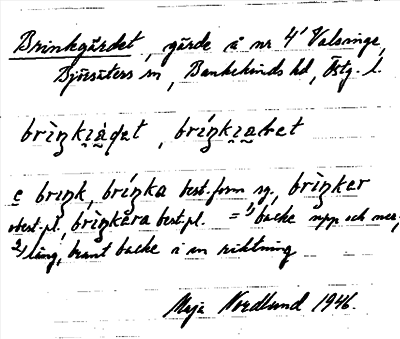 Brinkgärdet, gärde å nr 4¹ Valsinge,
Björsäters sn, Bankekinds hd, Östg. l.
e brink, brínka best. form sg., brìnker
obest. pl., brìnkera best. pl. = 1) backe upp och ner,
2) lång, brant backe i en riktning
Maja Nordlund 1946.